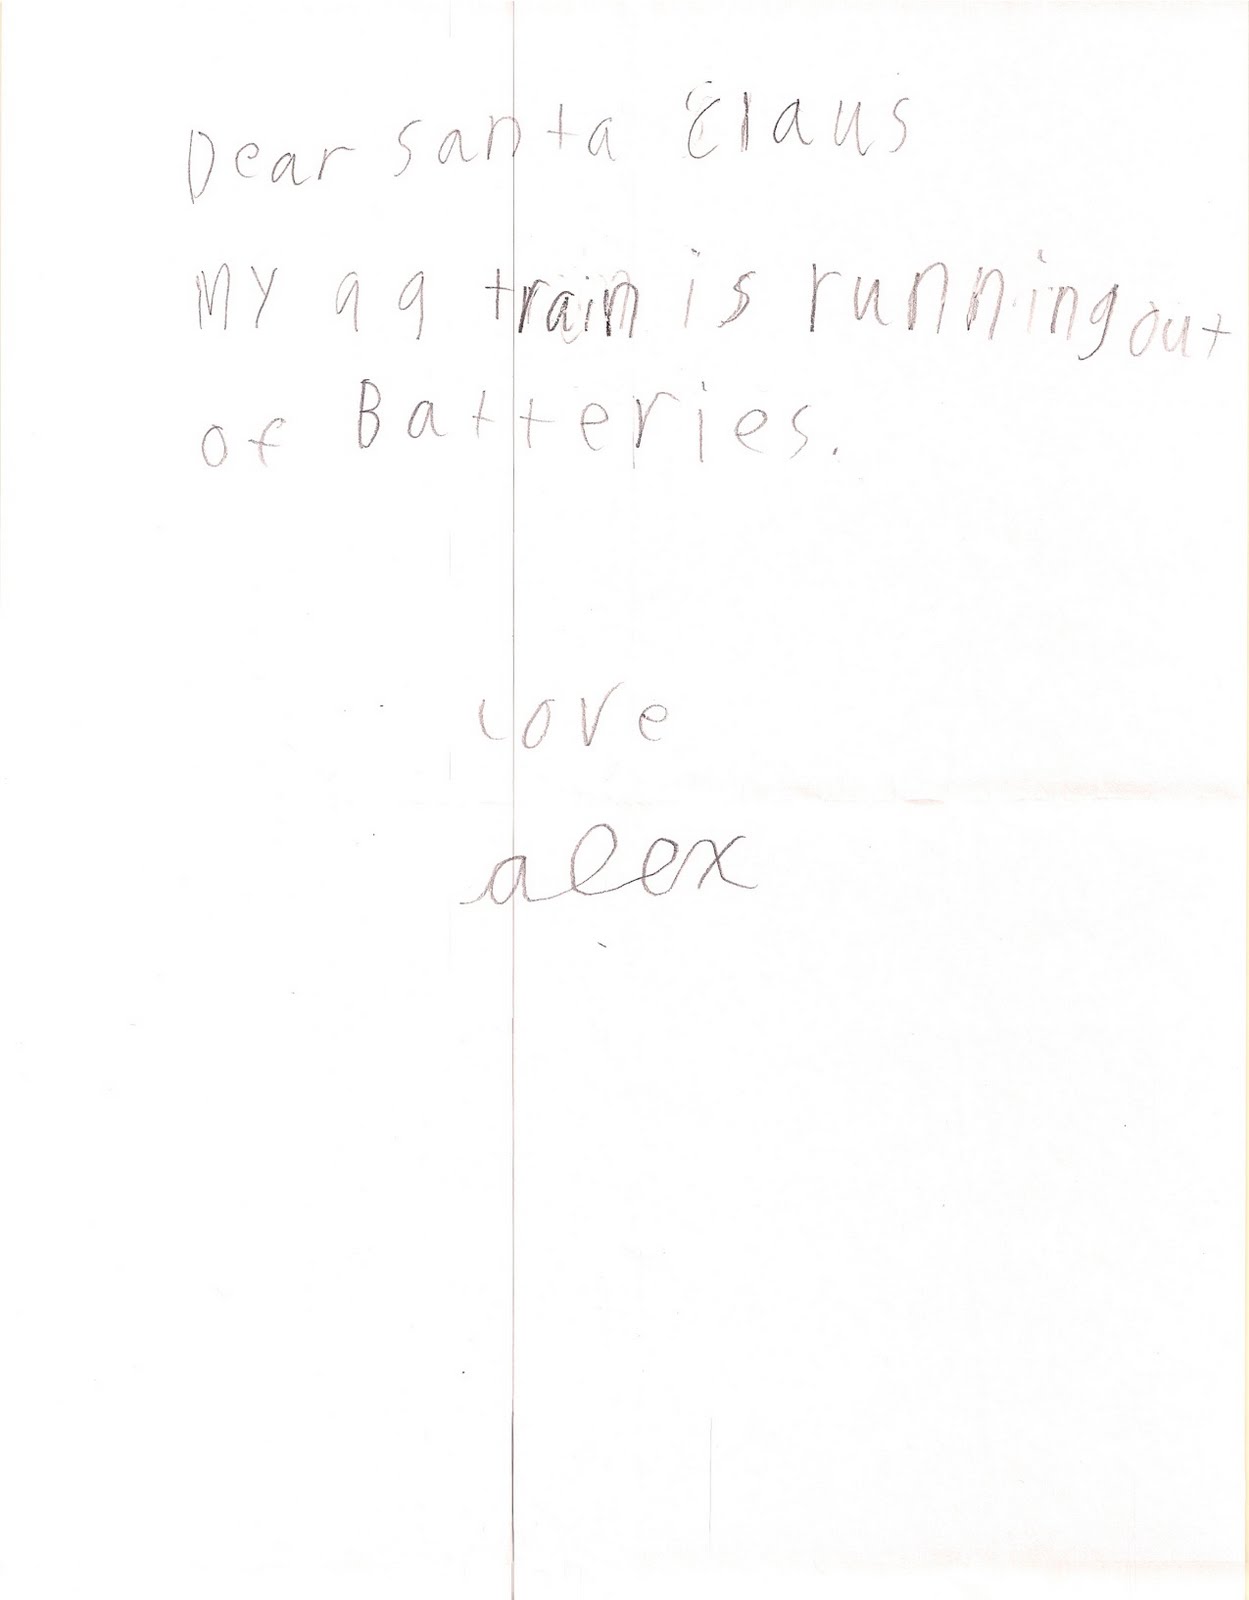 Dear santa Claus
MY 99 train is running out
of Batteries.
Love
alex